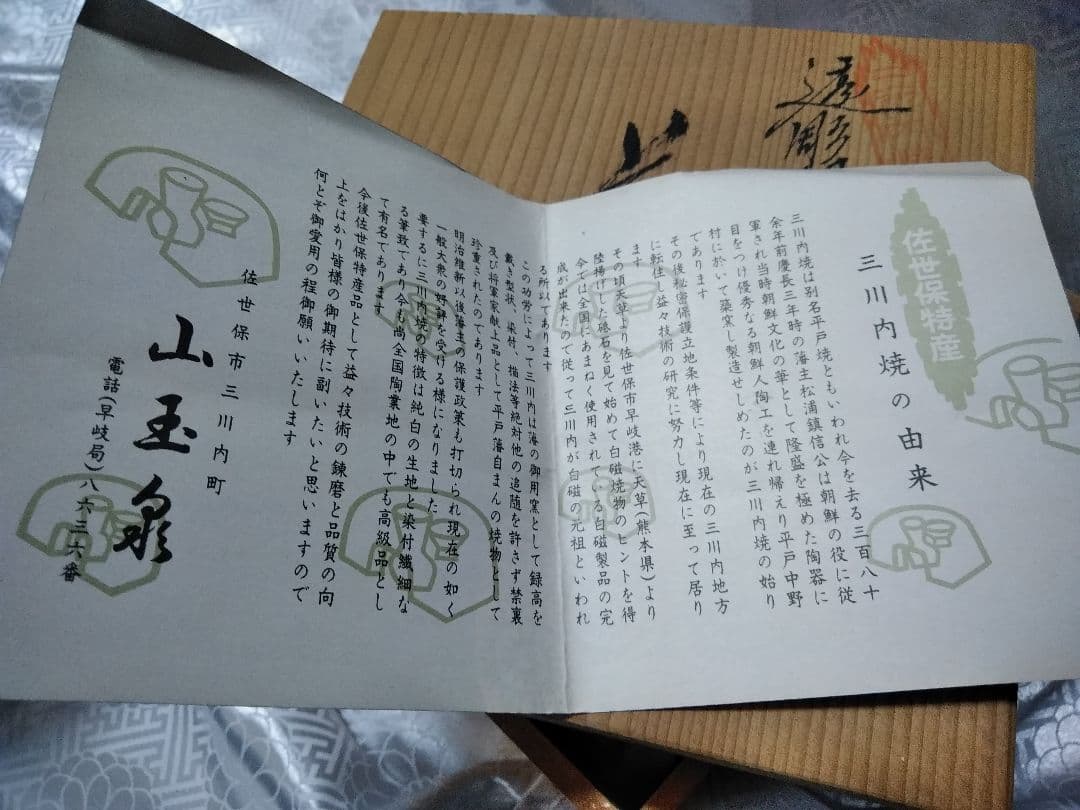 透彫
佐世保特産
三川内焼の由来
三川内焼は別名平戸焼ともいわれ今を去る三百八十
余年前慶長三年時の藩主松浦鎮信公は朝鮮の役に従
軍され当時朝鮮文化の華として隆盛を極めた陶器に
目をつけ優秀なる朝鮮人陶工を連れ帰えり平戸中野
村に於いて築窯し製造せしめたのが三川内焼の始り
であります
その後秘密保護立地条件等により現在の三川内地方
に転住し益々技術の研究に努力し現在に至って居り
ます
その頃天草より佐世保市早岐港に天草(熊本県)より
陸揚げした砥石を見て始めて白磁焼物のヒントを得
今では全国にあまねく使用されてる白磁製品の完
成が出来たので従って三川内が白磁の元祖といわれ
る所以であります
この功労によって三川内は藩の御用窯として録高を
戴き型状、染付、描法等絶対他の追随を許さず禁裏
及び将軍家献上品として平戸藩自まんの焼物として
珍重されたのであります
明治維新以後藩主の保護政策も打切られ現在の如く
一般大衆の好評を受ける様になりました
要するに三川内焼の特徴は純白の生地と染付繊細な
る筆致であり今も尚全国陶業地の中でも高級品とし
て有名であります
今後佐世保特産品として益々技術の錬磨と品質の向
上をはかり皆様の御期待に副いたいと思いますので
何とぞ御愛用の程御願いいたします
佐世保市三川内町
山玉泉
電話(早岐局)八六三六番